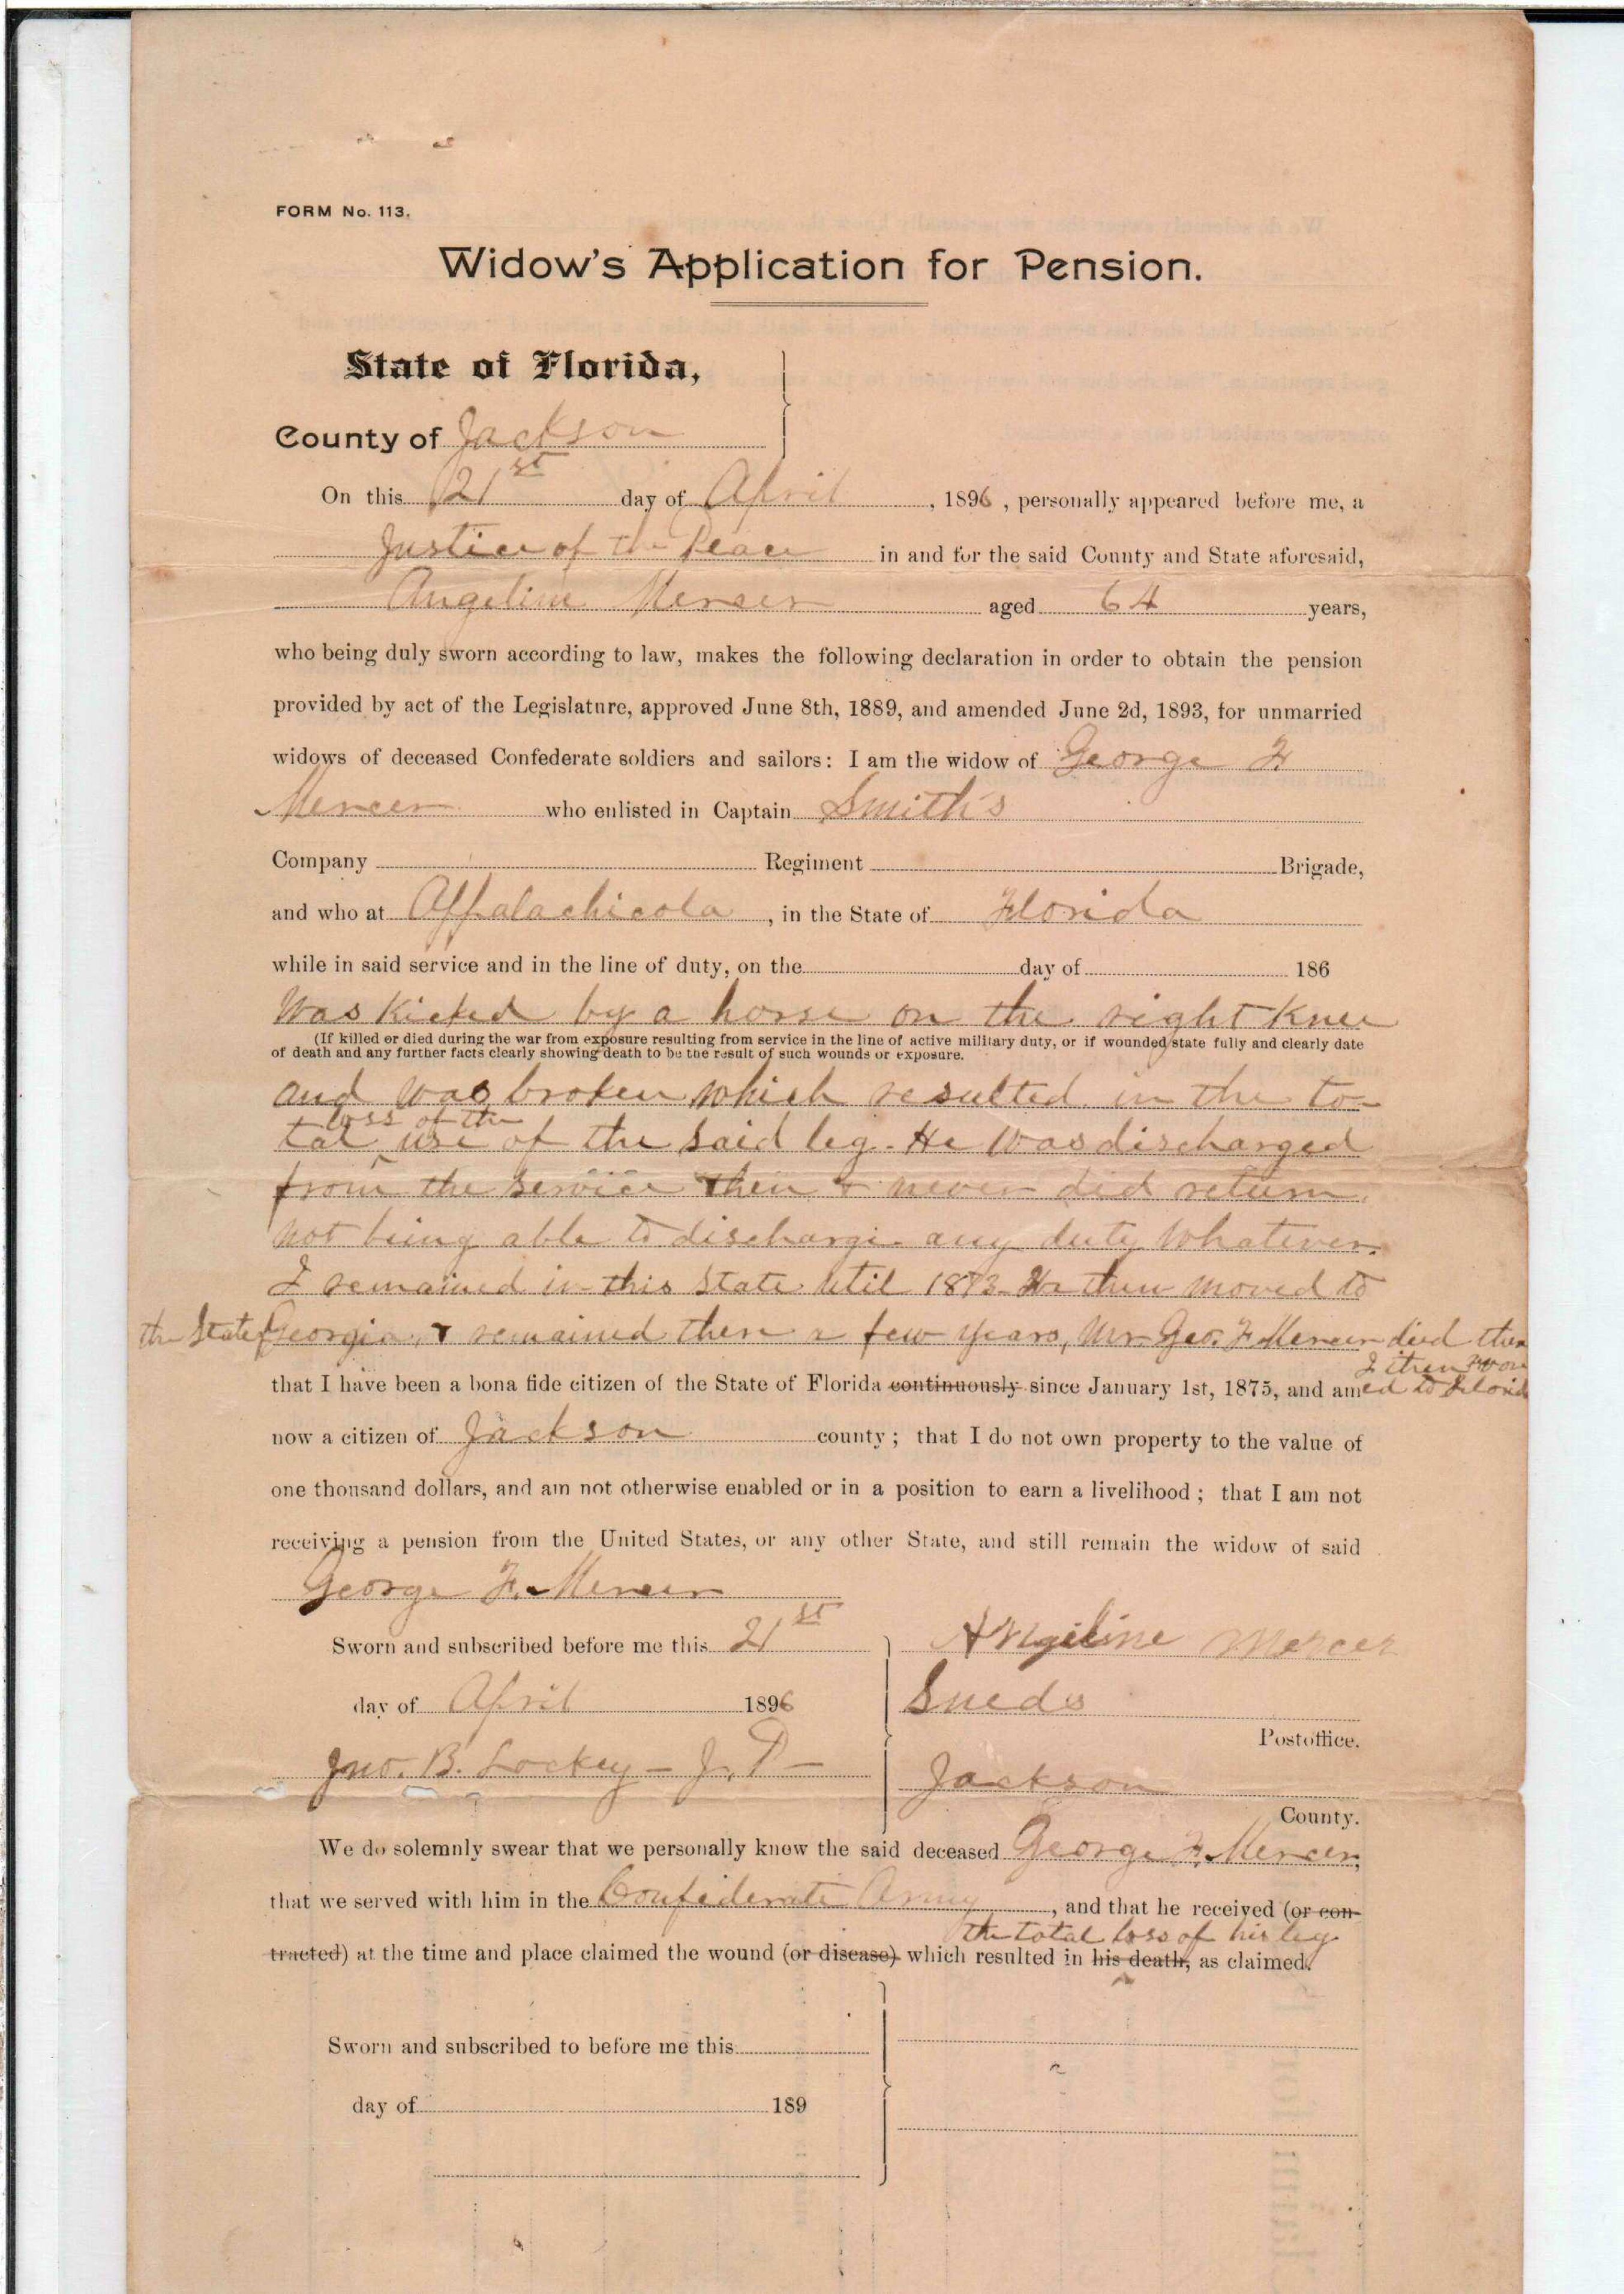 FORM No. 113.
Widow's Application for Pension.
State of Florida,
County of Jackson
On this 21st day of April, 1896, personally appeared before me, a
Justice of the Peace in and for the said County and State aforesaid,
Angeline Mercer aged 64 years,
who being duly sworn according to law, makes the following declaration in order to obtain the pension
provided by act of the Legislature, approved June 8th, 1889, and amended June 2d, 1893, for unmarried
widows of deceased Confederate soldiers and sailors: I am the widow of George F
Mercer who enlisted in Captain Smith's
Company Regiment Brigade,
and who at Appalachicola, in the State of Florida
while in said service and in the line of duty, on the day of 186
Was Kicked by a horse on the right Knee
(If killed or died during the war from exposure resulting from service in the line of active military duty, or if wounded state fully and clearly date
of death and any further facts clearly showing death to be the result of such wounds or exposure.
and was broken which resulted in the to-
loss of the
tal use of the said leg. He was discharged
from the service then & never did return
not being able to discharge any duty whatever.
I remained in this State util 1873. We then moved to
the State of Georgia, & remained there a few years, Mr. Geo. F. Mercer died there
I then mov
that I have been a bona fide citizen of the State of Florida continuously since January 1st, 1875, and am ed to Florid
now a citizen of Jackson county; that I do not own property to the value of
one thousand dollars, and am not otherwise enabled or in a position to earn a livelihood; that I am not
receiving a pension from the United States, or any other State, and still remain the widow of said
George F. Mercer
Sworn and subscribed before me this 21st
Angeline Mercer
day of April 1896
Sneds
Postoffice.
Jno. B. Lockey - J. P -
Jackson
County.
We do solemnly swear that we personally knew the said deceased George F. Mercer,
that we served with him in the Confederate Army, and that he received (or con-
the total loss of his leg
tracted) at the time and place claimed the wound (or disease) which resulted in his death, as claimed.
Sworn and subscribed to before me this
day of 189